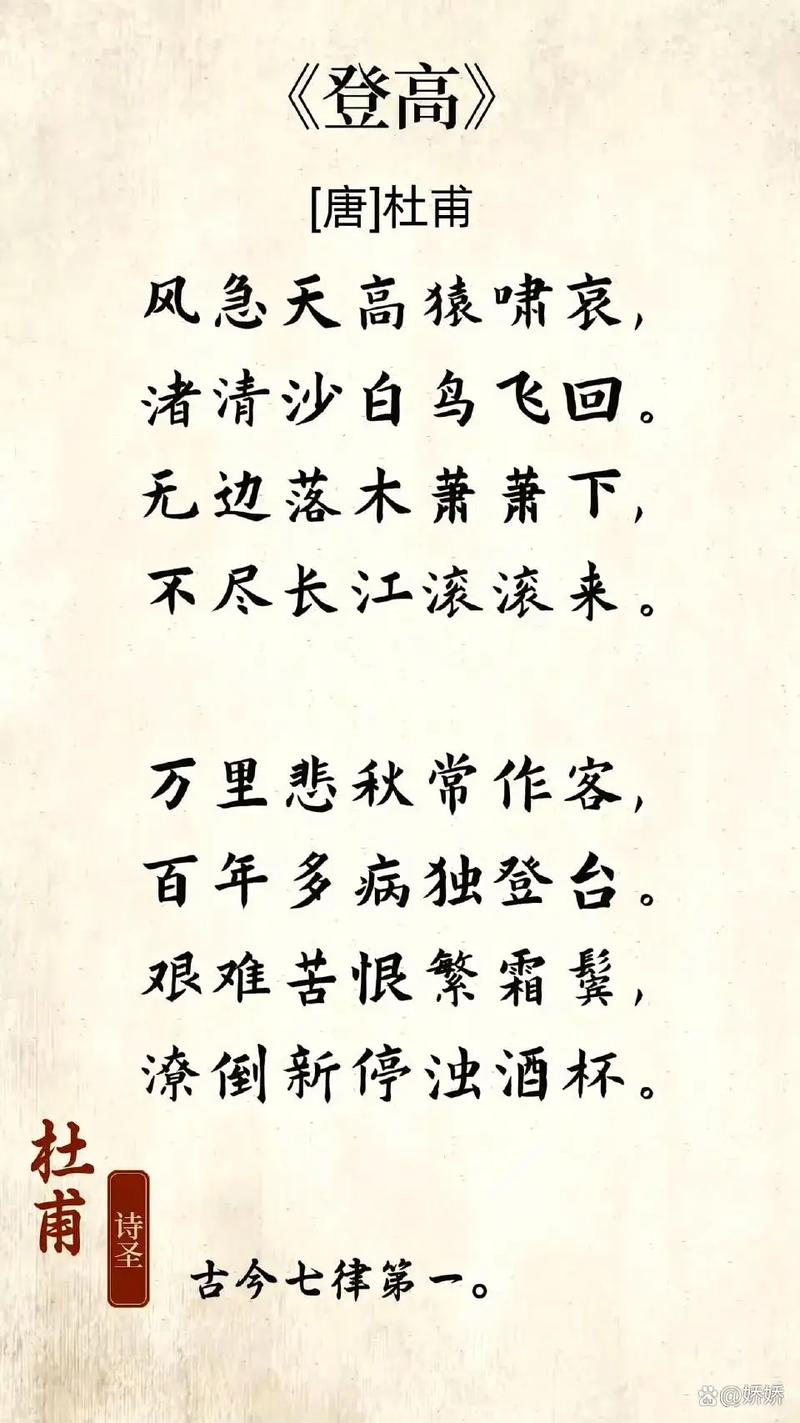 《登高》
[唐]杜甫
风急天高猿啸哀，
渚清沙白鸟飞回。
无边落木萧萧下，
不尽长江滚滚来。
万里悲秋常作客，
百年多病独登台。
艰难苦恨繁霜鬓，
潦倒新停浊酒杯。
杜甫
诗圣
古今七律第一。
@娇娇